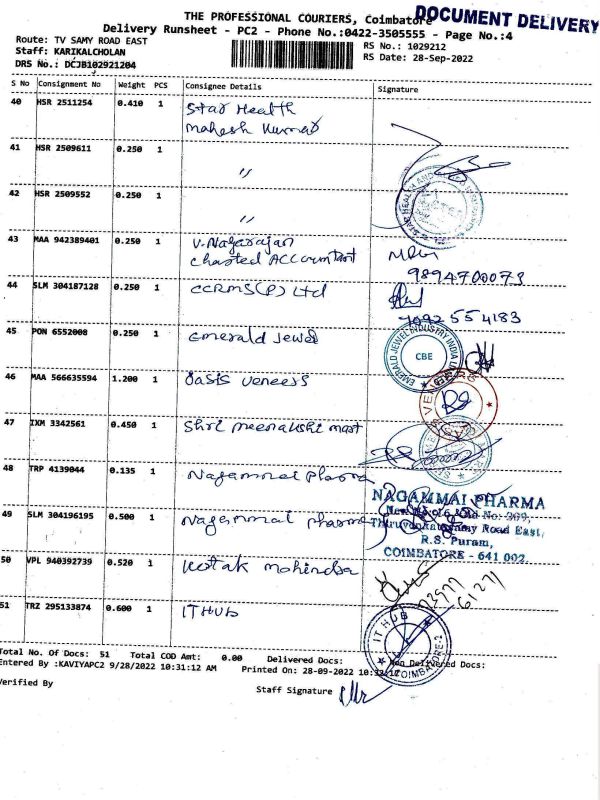 THE PROFESSIONAL COURIERS, Coimbatore
DOCUMENT DELIVERY
Delivery Runsheet - PC2 - Phone No.:0422-3505555 - Page No.:4
Route: TV SAMY ROAD EAST
RS No.: 1029212
Staff: KARIKALCHOLAN
RS Date: 28-Sep-2022
DRS No.: DCJB102921204
S No Consignment No Weight PCS Consignee Details Signature
40 HSR 2511254 0.410 1 Star Health
Mahesh Kumar
41 HSR 2509611 0.250 1 "
42 HSR 2509552 0.250 1 "
43 MAA 942389401 0.250 1 V. Nagarajan
Charted Accountant
9894700073
44 SLM 304187128 0.250 1 CCRMS(P) Ltd
7092554183
45 PON 6552008 0.250 1 Emerald Jewel
EMERALD JEWEL INDUSTRY INDIA
CBE
46 MAA 566635594 1.200 1 Oasis Veneers
47 IXM 3342561 0.450 1 Shri Meenakshi mast
48 TRP 4139044 0.135 1 Nagammai Pharma
NAGAMMAI PHARMA
49 SLM 304196195 0.500 1 Nagammai pharma
Thiruvenkatasamy Road East,
R.S. Puram,
COIMBATORE - 641 002
50 VPL 940392739 0.520 1 Kotak mohindra
51 TRZ 295133874 0.600 1 ITHUB
IT HUB
COIMBATORE-2
Total No. Of Docs: 51 Total COD Amt: 0.00 Delivered Docs: Non Delivered Docs:
Entered By :KAVIYAPC2 9/28/2022 10:31:12 AM Printed On: 28-09-2022 10:32:12
Verified By
Staff Signature